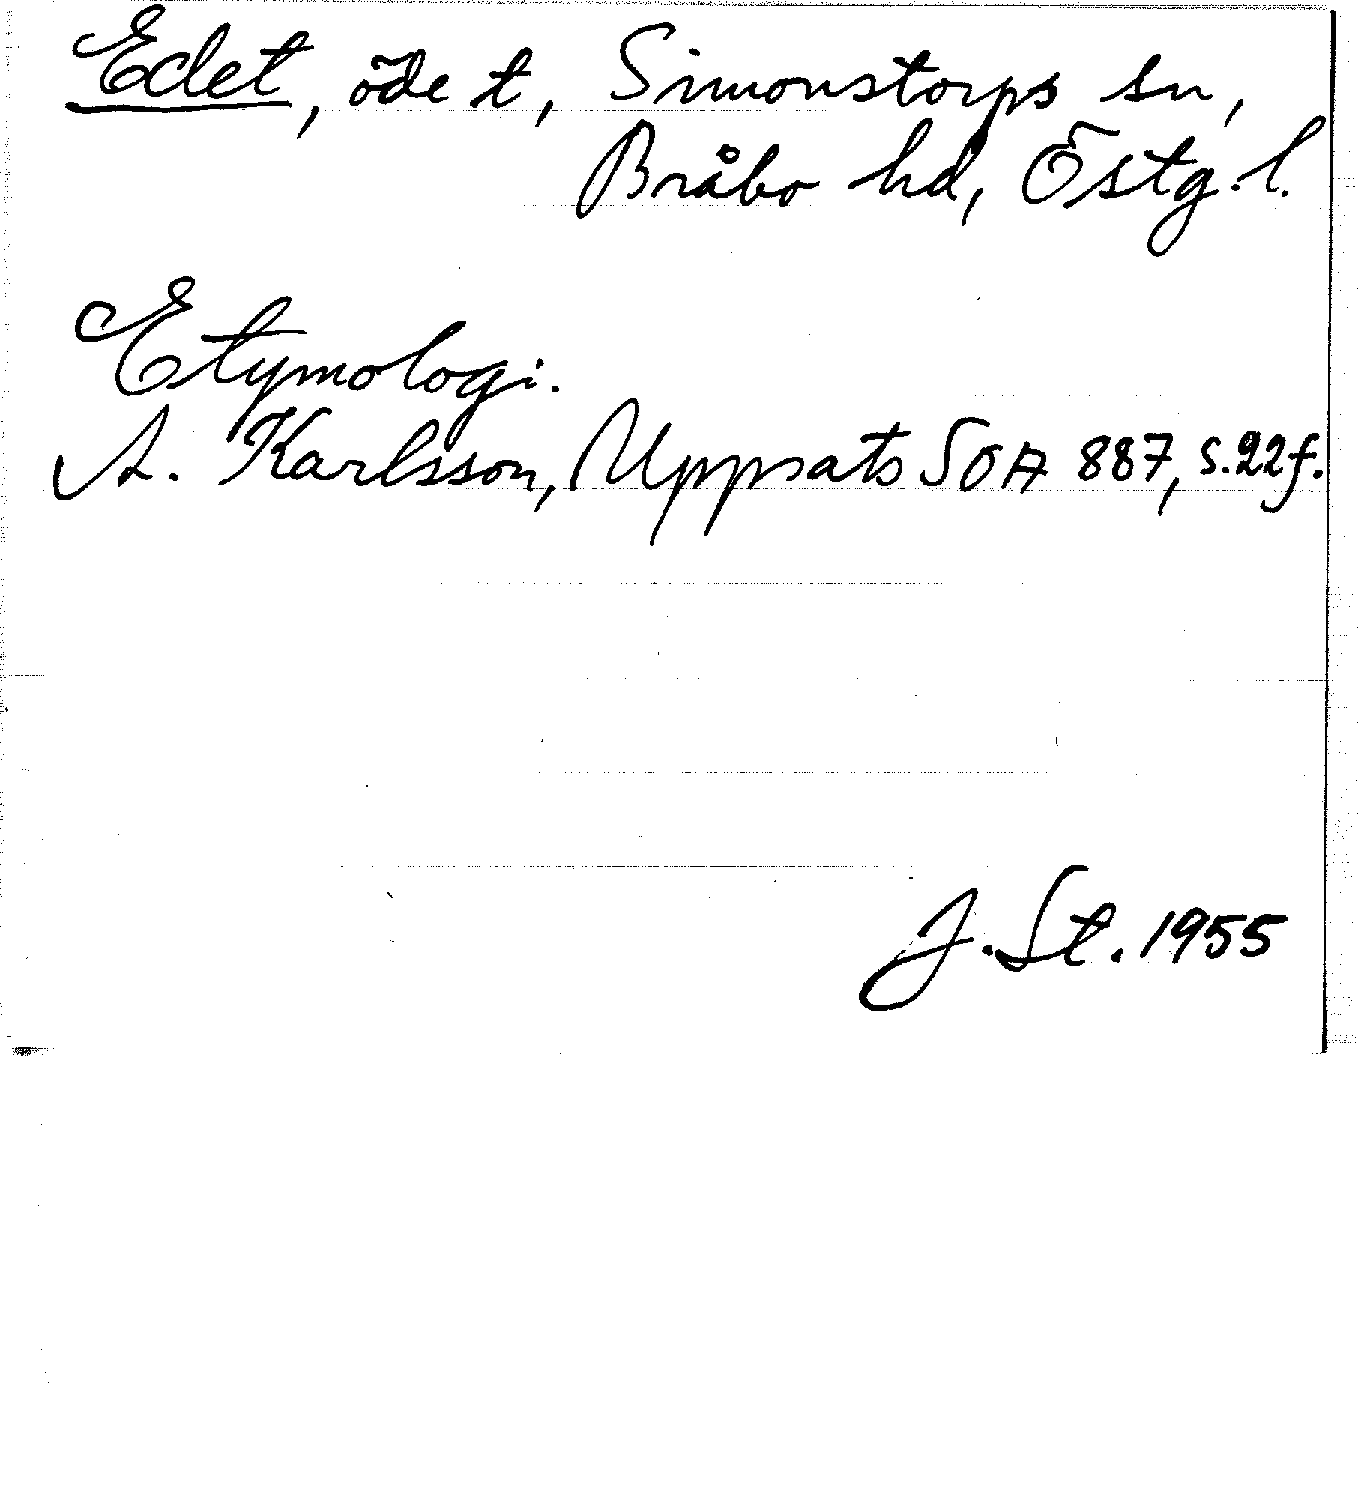 Edet, öde t, Simonstorps sn,
Bråbo hd, Östg. l.
Etymologi.
A. Karlsson, Uppsats SOA 887, s. 22 f.
J. St. 1955